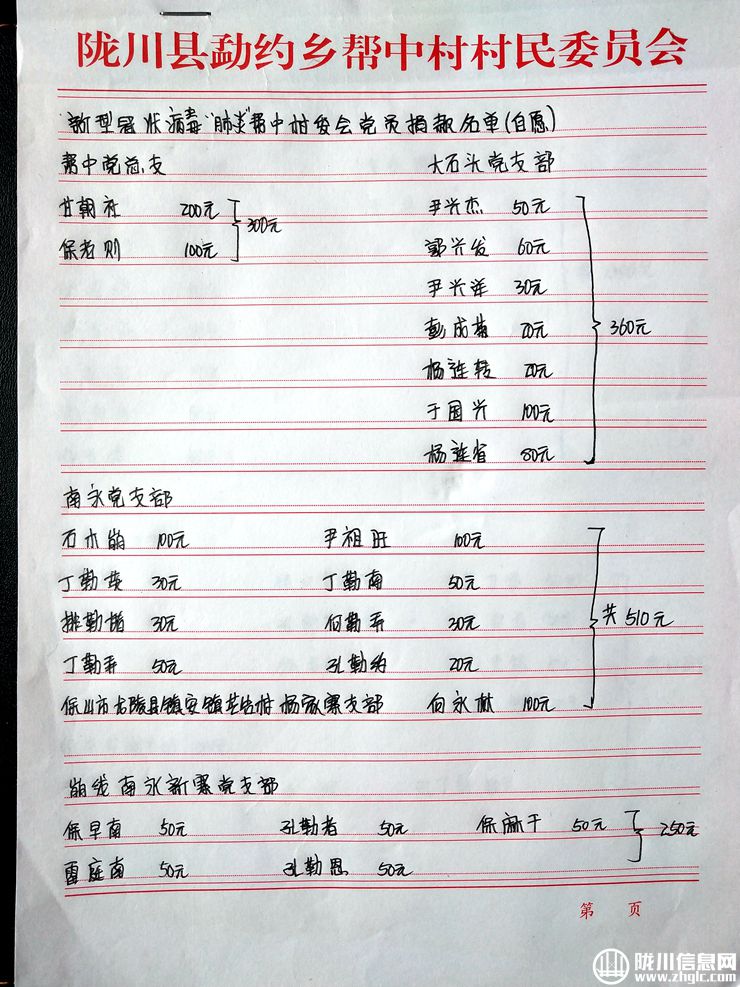 陇川县勐约乡帮中村村民委员会
"新型冠状病毒"肺炎"帮中村委会党员捐款名单(自愿)
帮中党总支 大石头党支部
甘朝社 200元 300元 尹兴杰 50元
保老则 100元 郭兴发 60元
尹兴洋 30元
彭成英 20元 360元
杨连转 20元
于国兴 100元
杨连省 80元
南永党支部
石木崩 100元 尹祖旺 100元
丁勒英 30元 丁勒南 50元
排勒堵 30元 何勒弄 30元 共510元
丁勒弄 50元 孔勒约 20元
保山市龙陵县镇安镇 村杨家寨支部 向永林 100元
崩线南永新寨党支部
保早南 50元 孔勒者 50元 保麻干 50元 250元
雷庭南 50元 孔勒恩 50元
第 页
陇川信息网
www.zhglc.com